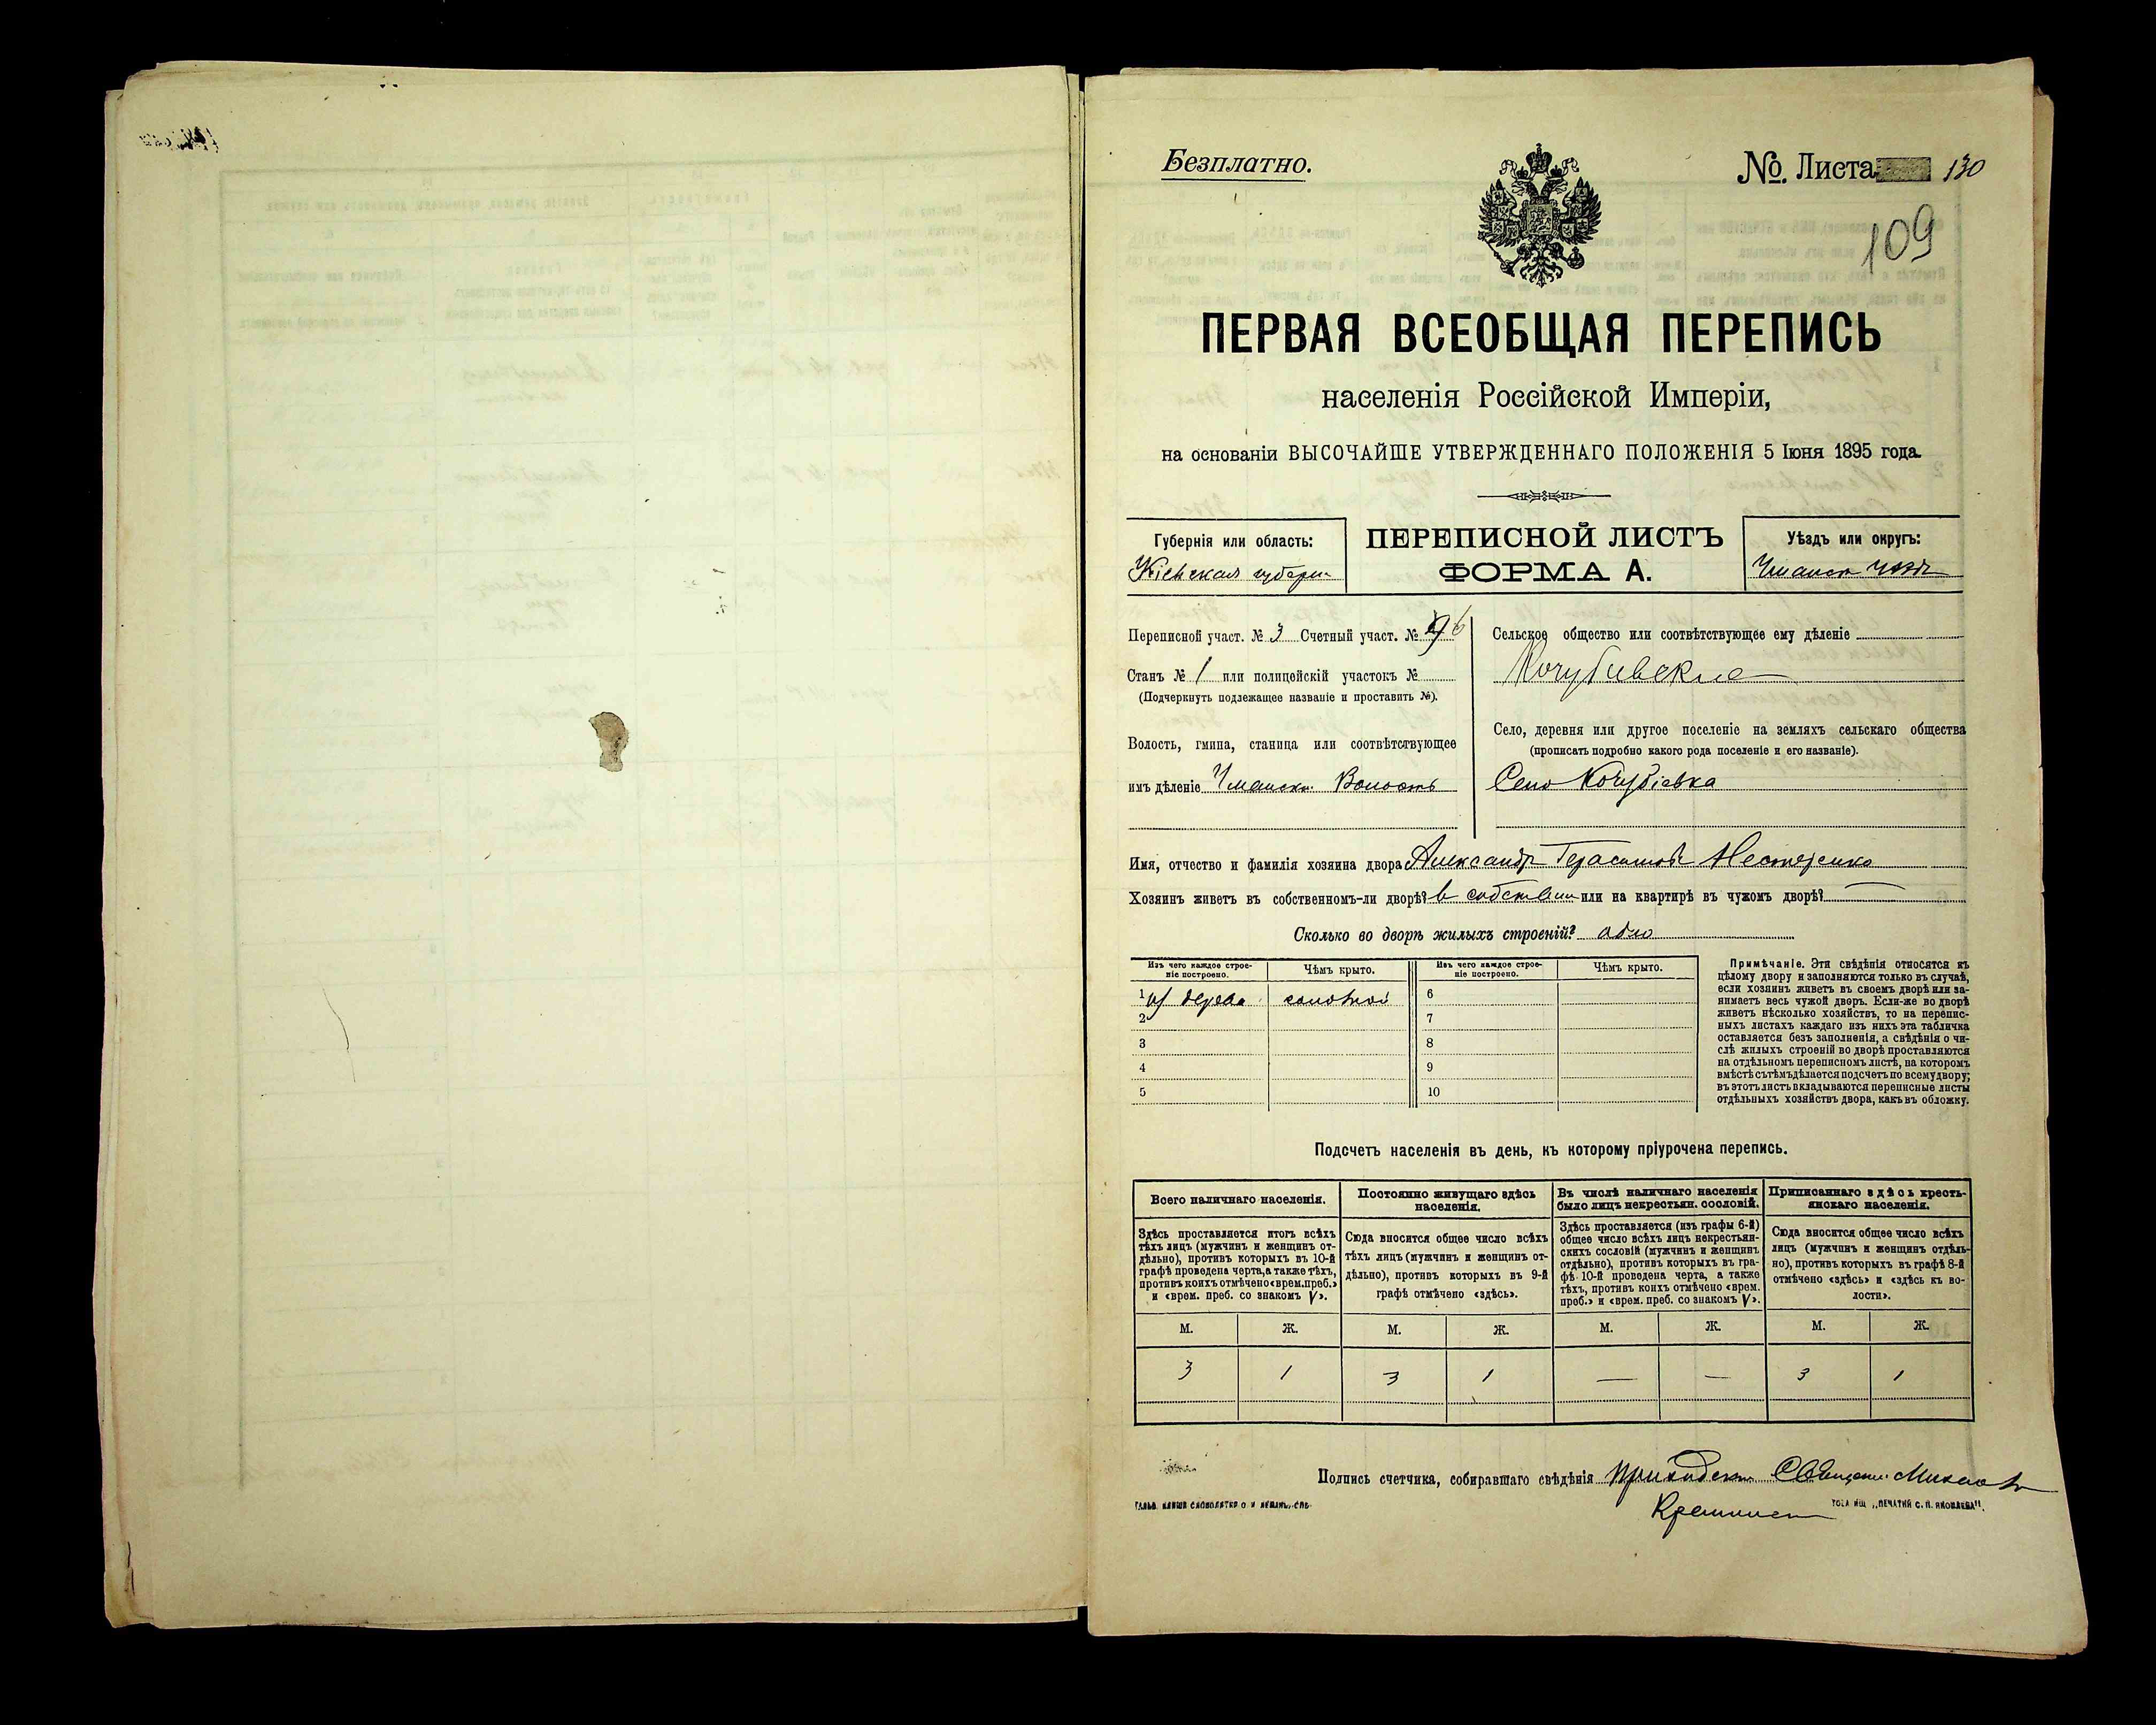 Безплатно.
№. Листа 130
109
ПЕРВАЯ ВСЕОБЩАЯ ПЕРЕПИСЬ
населенія Россійской Имперіи,
на основаніи ВЫСОЧАЙШЕ УТВЕРЖДЕННАГО ПОЛОЖЕНІЯ 5 Іюня 1895 года.
Губернія или область:
Кіевская губерн
ПЕРЕПИСНОЙ ЛИСТЪ
ФОРМА А.
Уѣздъ или округъ:
Уманск уѣзд
Переписной участ. № 3 Счетный участ. № 6
Станъ № 1 или полицейскій участокъ №
(Подчеркнуть подлежащее названіе и проставить №).
Волость, гмина, станица или соотвѣтствующее
имъ дѣленіе Уманск. Волость
Сельское общество или соотвѣтствующее ему дѣленіе
Кочубивское
Село, деревня или другое поселеніе на земляхъ сельскаго общества
(прописать подробно какого рода поселеніе и его названіе).
Село Кочубіевка
Имя, отчество и фамилія хозяина двора Александр Герасимов Нестеренко
Хозяинъ живетъ въ собственномъ-ли дворѣ? в собствен или на квартирѣ въ чужомъ дворѣ? —
Сколько во дворѣ жилыхъ строеній? одно
Изъ чего каждое строе-
ніе построено.
Чѣмъ крыто.
Изъ чего каждое строе-
ніе построено.
Чѣмъ крыто.
1 из дерева соломой 6
2 7
3 8
4 9
5 10
Примѣчаніе. Эти свѣдѣнія относятся къ
цѣлому двору и заполняются только въ случаѣ,
если хозяинъ живетъ въ своемъ дворѣ или за-
нимаетъ весь чужой дворъ. Если-же во дворѣ
живетъ нѣсколько хозяйствъ, то на перепис-
ныхъ листахъ каждаго изъ нихъ эта табличка
оставляется безъ заполненія, а свѣдѣнія о чи-
слѣ жилыхъ строеній во дворѣ проставляются
на отдѣльномъ переписномъ листѣ, на которомъ
вмѣстѣ съ тѣмъ дѣлается подсчетъ по всему двору;
въ этотъ листъ вкладываются переписные листы
отдѣльныхъ хозяйствъ двора, какъ въ обложку.
Подсчетъ населенія въ день, къ которому пріурочена перепись.
Всего наличнаго населенія.
Здѣсь проставляется итогъ всѣхъ
тѣхъ лицъ (мужчинъ и женщинъ от-
дѣльно), противъ которыхъ въ 10-й
графѣ проведена черта, а также тѣхъ,
противъ коихъ отмѣчено «врем. преб.»
и «врем. преб. со знакомъ V».
Постоянно живущаго здѣсь
населенія.
Сюда вносится общее число всѣхъ
тѣхъ лицъ (мужчинъ и женщинъ от-
дѣльно), противъ которыхъ въ 9-й
графѣ отмѣчено «здѣсь».
Въ числѣ наличнаго населенія
было лицъ некрестьян. сословій.
Здѣсь проставляется (изъ графы 6-й)
общее число всѣхъ лицъ некрестьян-
скихъ сословій (мужчинъ и женщинъ
отдѣльно), противъ которыхъ въ гра-
фѣ 10-й проведена черта, а также
тѣхъ, противъ коихъ отмѣчено «врем.
преб.» и «врем. преб. со знакомъ V».
Приписаннаго здѣсь кресть-
янскаго населенія.
Сюда вносится общее число всѣхъ
лицъ (мужчинъ и женщинъ отдѣль-
но), противъ которыхъ въ графѣ 8-й
отмѣчено «здѣсь» и «здѣсь къ во-
лости».
М. Ж. М. Ж. М. Ж. М. Ж.
3 1 3 1 — — 3 1
Подпись счетчика, собиравшаго свѣдѣнія приходск. Священн. Михаил